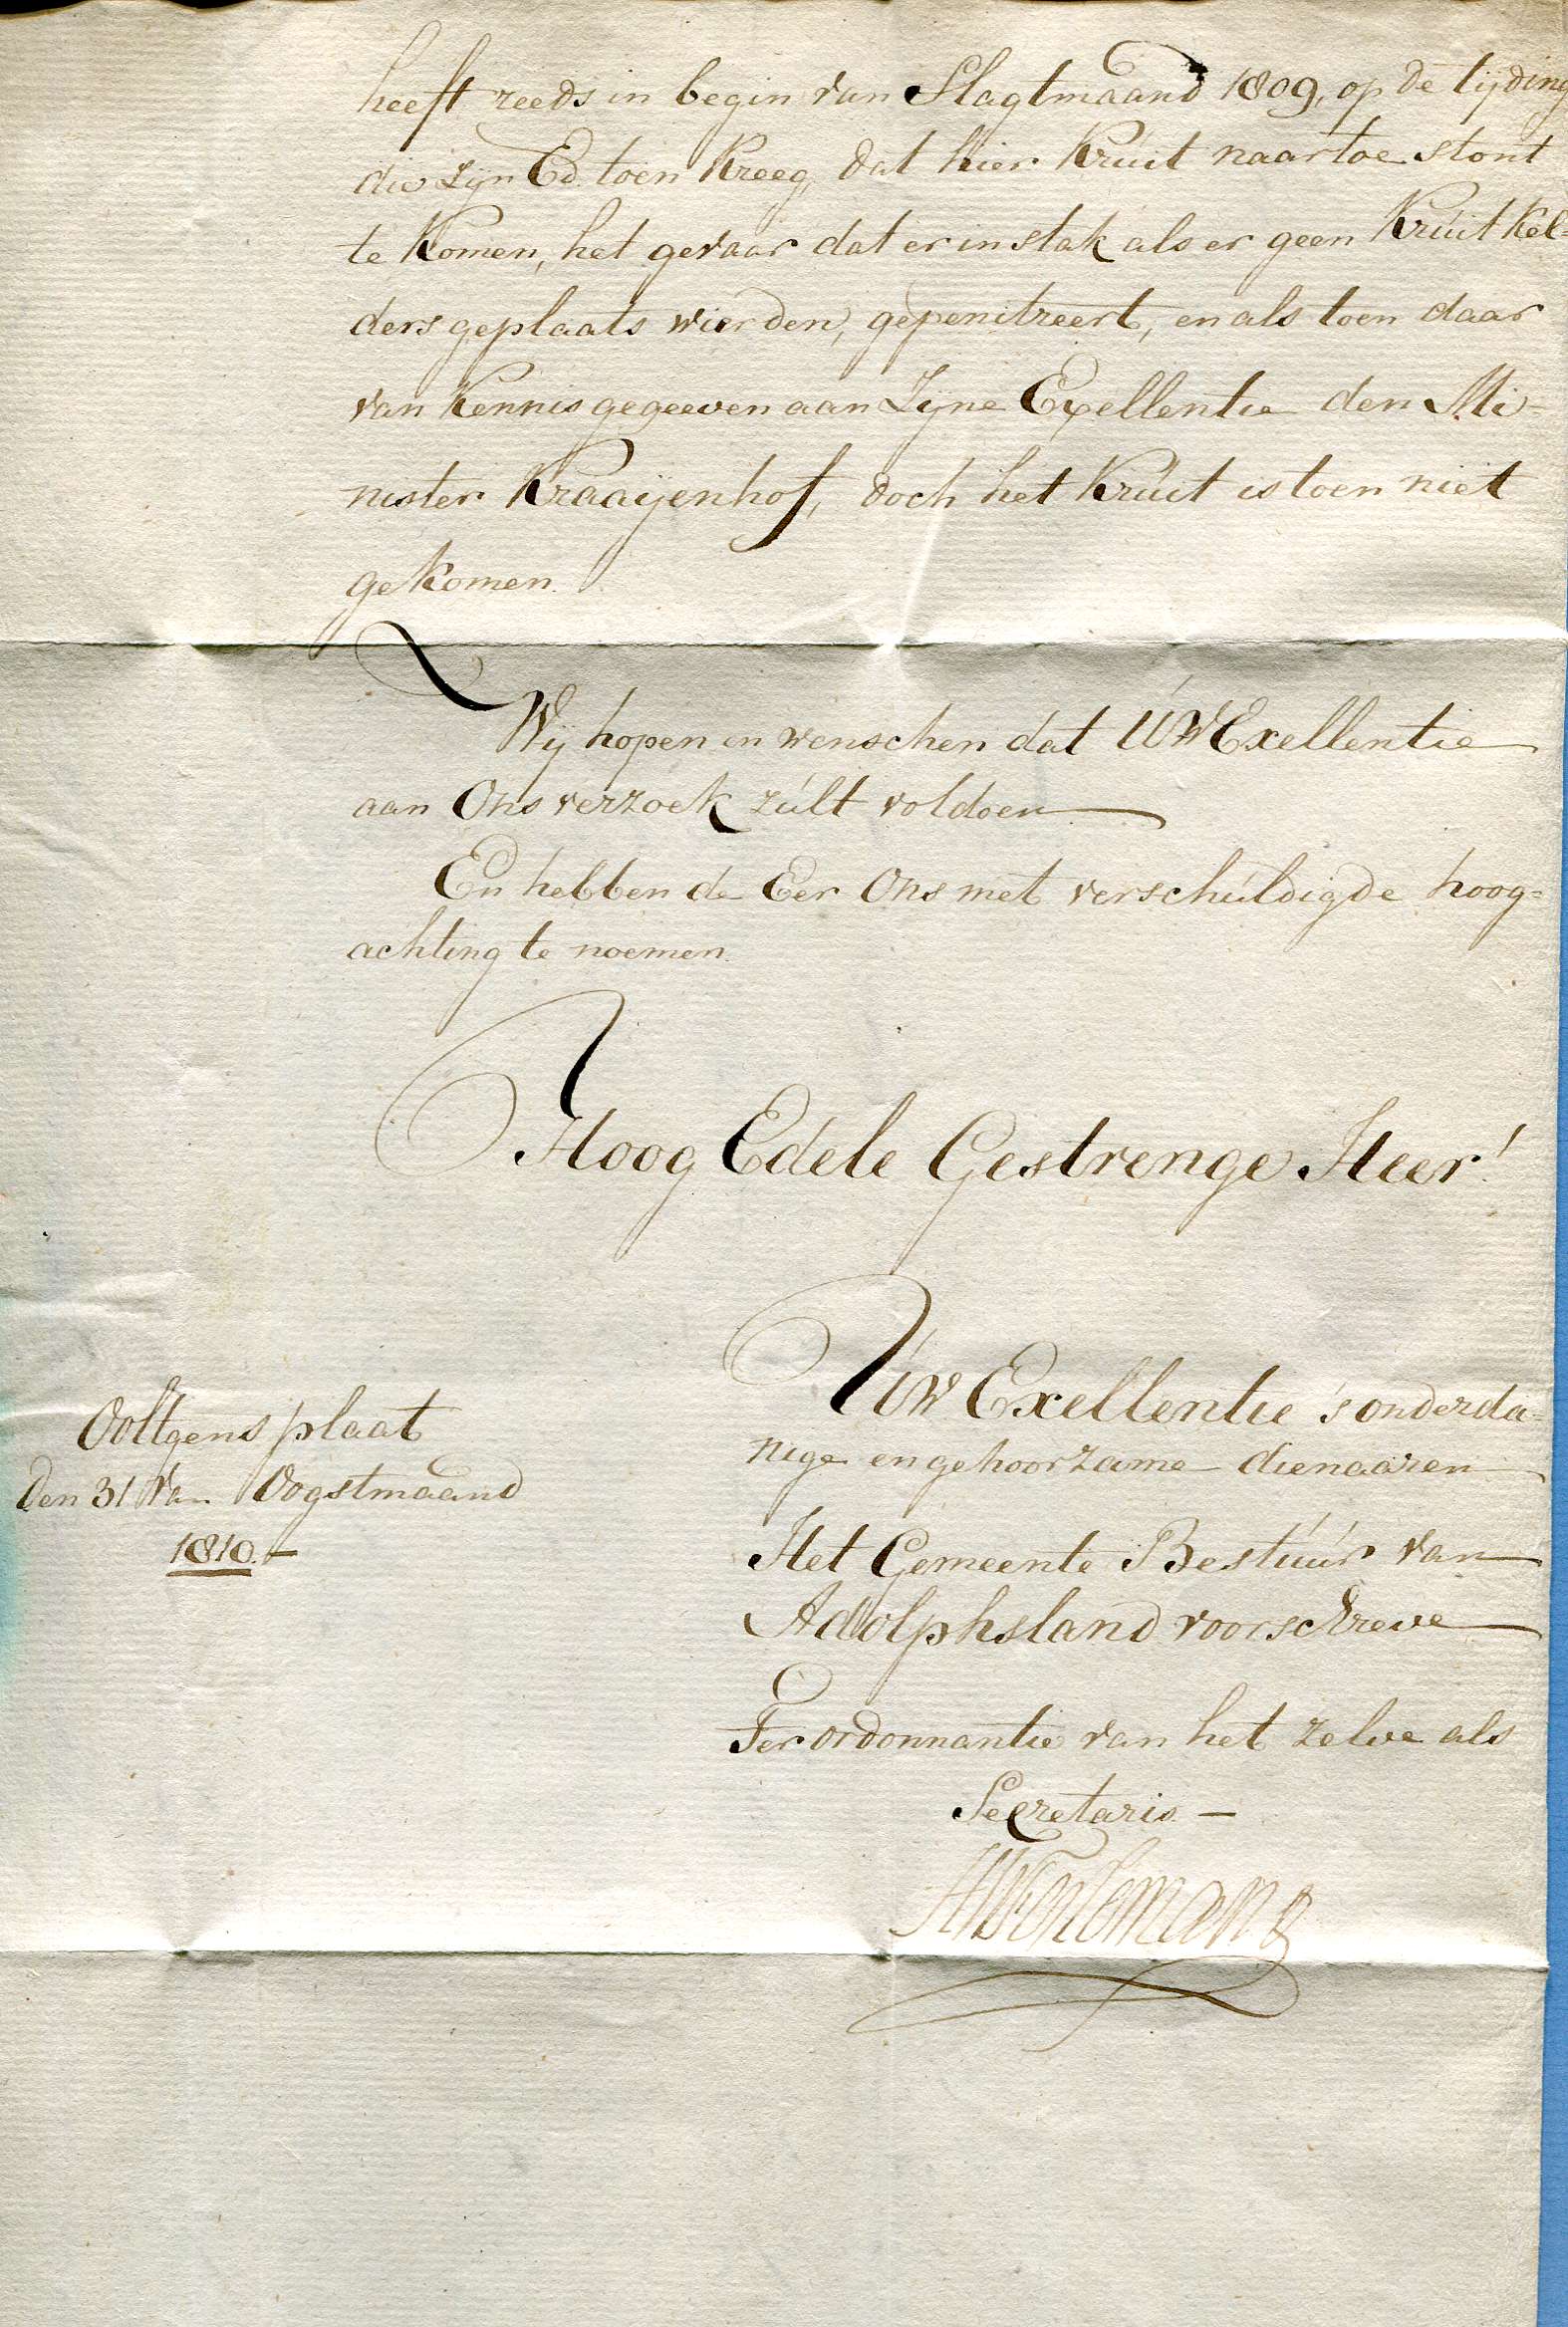 heeft reeds in begin van Slagtmaand 1809, op de tijding
die zijn Ed. toen Kreeg, dat hier Kruit naartoe stont
te Komen, het gevaar dat er in stak als er geen Kruit Kel=
ders geplaats wierden, gepenitreert, en als toen daar
van Kennis gegeeven aan Zijne Exellentie den Mi=
nister Kraaijenhof, doch het Kruit is toen niet
gekomen.
Wij hopen en wenschen dat UW Exellentie
aan Ons verzoek zult voldoen
En hebben de Eer Ons met verschuldigde hoog=
achting te noemen.
Hoog Edele Gestrenge Heer!
Uw Exellentie 's onderda=
nige en gehoorzame dienaaren
Het Gemeente Bestuur van
Adolphsland voorschreve
Ter ordonnantie van het zelve als
Secretaris —
Ooltgensplaat
den 31 van Oogstmaand
1810. —